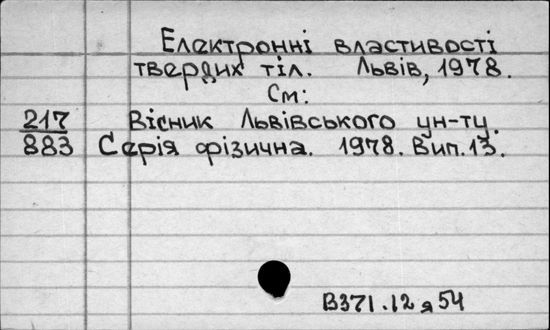 Електронні властивості
твердих тіл. Львів, 1978.
См:
217 Вісник Львівського ун-ту.
883 Серія фізична. 1978. Вип. 13.
В371.12я54